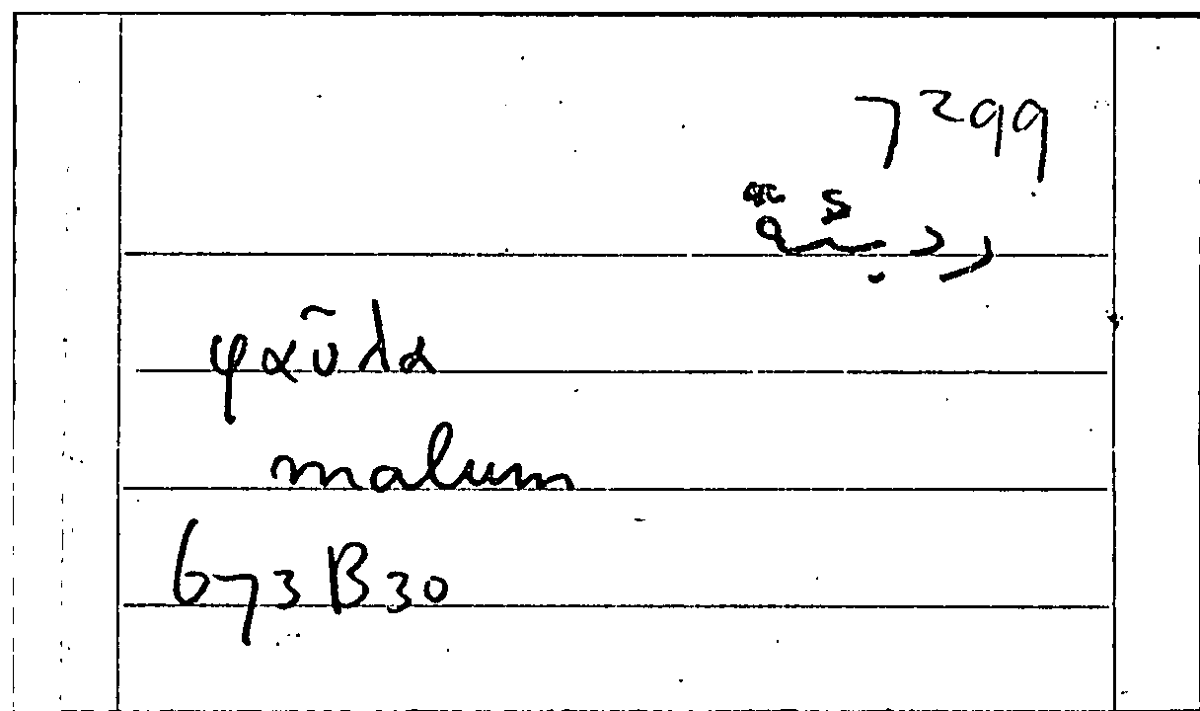 7299
رديئة
φαῦλα
malum
673B30